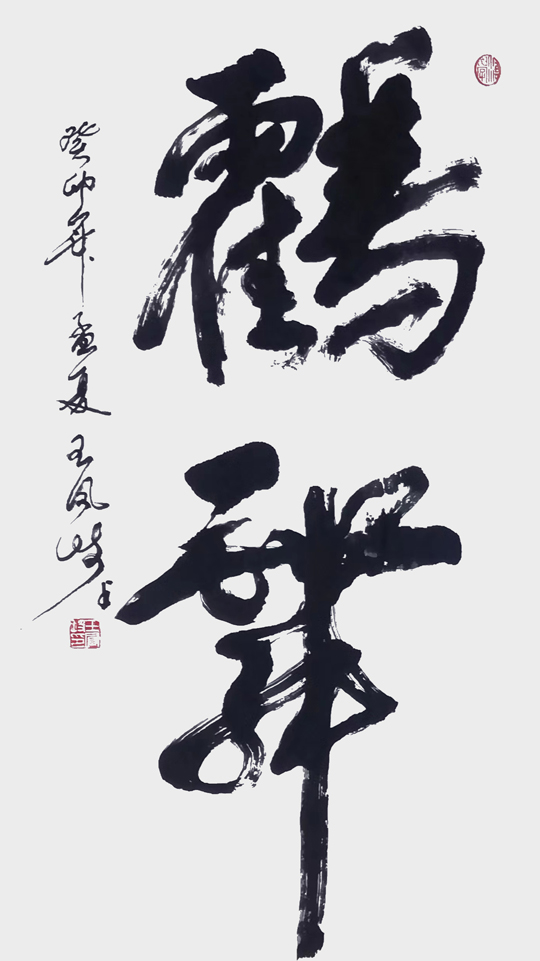 鸖舞
癸卯年孟夏王凤岐书